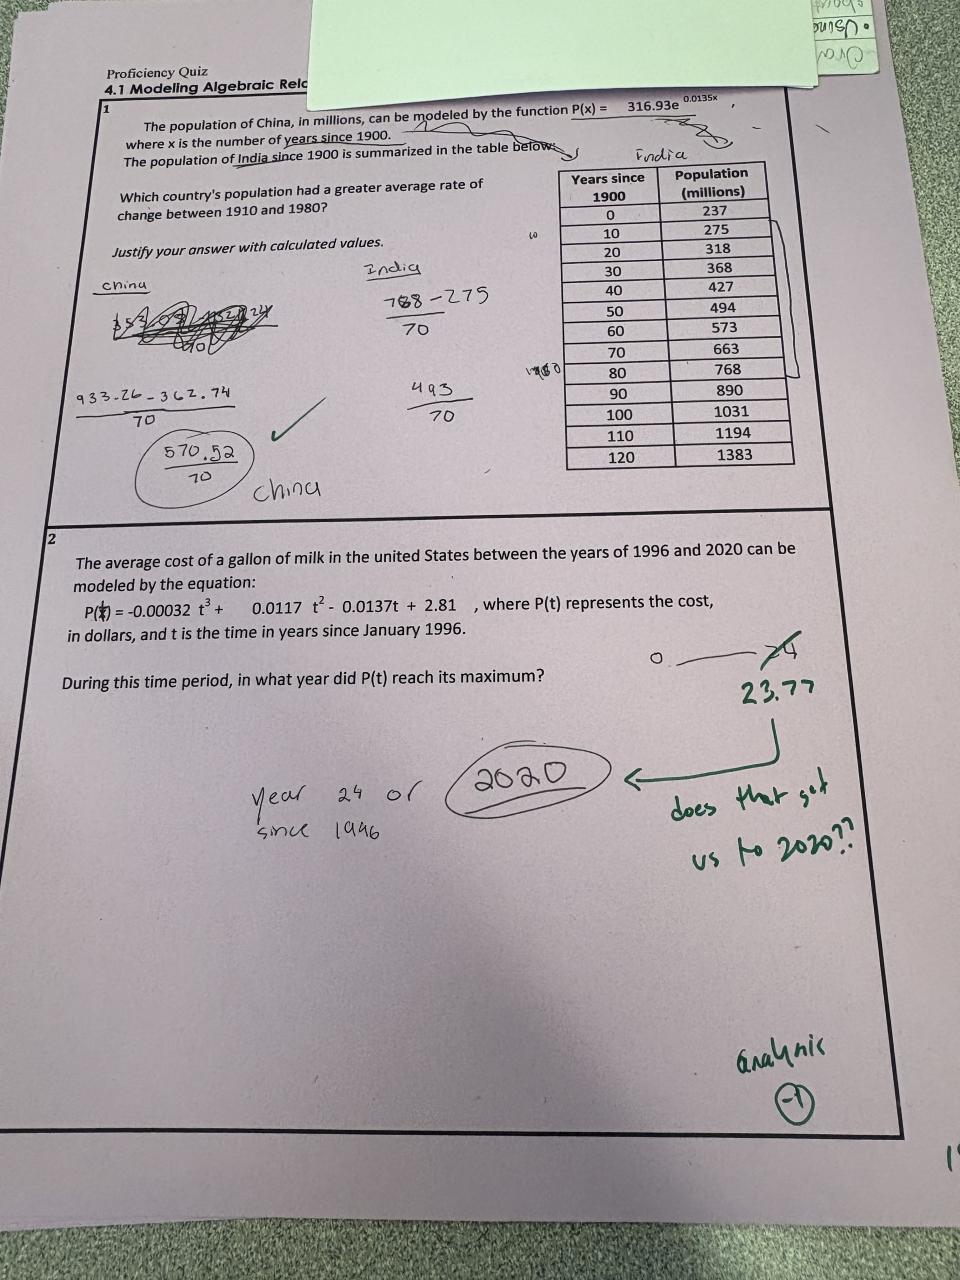 Proficiency Quiz
4.1 Modeling Algebraic Rela
1
The population of China, in millions, can be modeled by the function P(x) = 316.93e^0.0135x ,
where x is the number of years since 1900.
The population of India since 1900 is summarized in the table below:
India
Which country's population had a greater average rate of
change between 1910 and 1980?
Justify your answer with calculated values.
Years since 1900 Population (millions)
0 237
10 275
20 318
30 368
40 427
50 494
60 573
70 663
80 768
90 890
100 1031
110 1194
120 1383
10
China
India
768 - 275
70
933.26 - 362.74
70
493
70
570.52
70
China
2
The average cost of a gallon of milk in the united States between the years of 1996 and 2020 can be
modeled by the equation:
P(t) = -0.00032 t³ + 0.0117 t² - 0.0137t + 2.81 , where P(t) represents the cost,
in dollars, and t is the time in years since January 1996.
During this time period, in what year did P(t) reach its maximum?
0 — 24
23.77
year 24 or 2020
since 1996
does that get
us to 2020??
analysis
-1